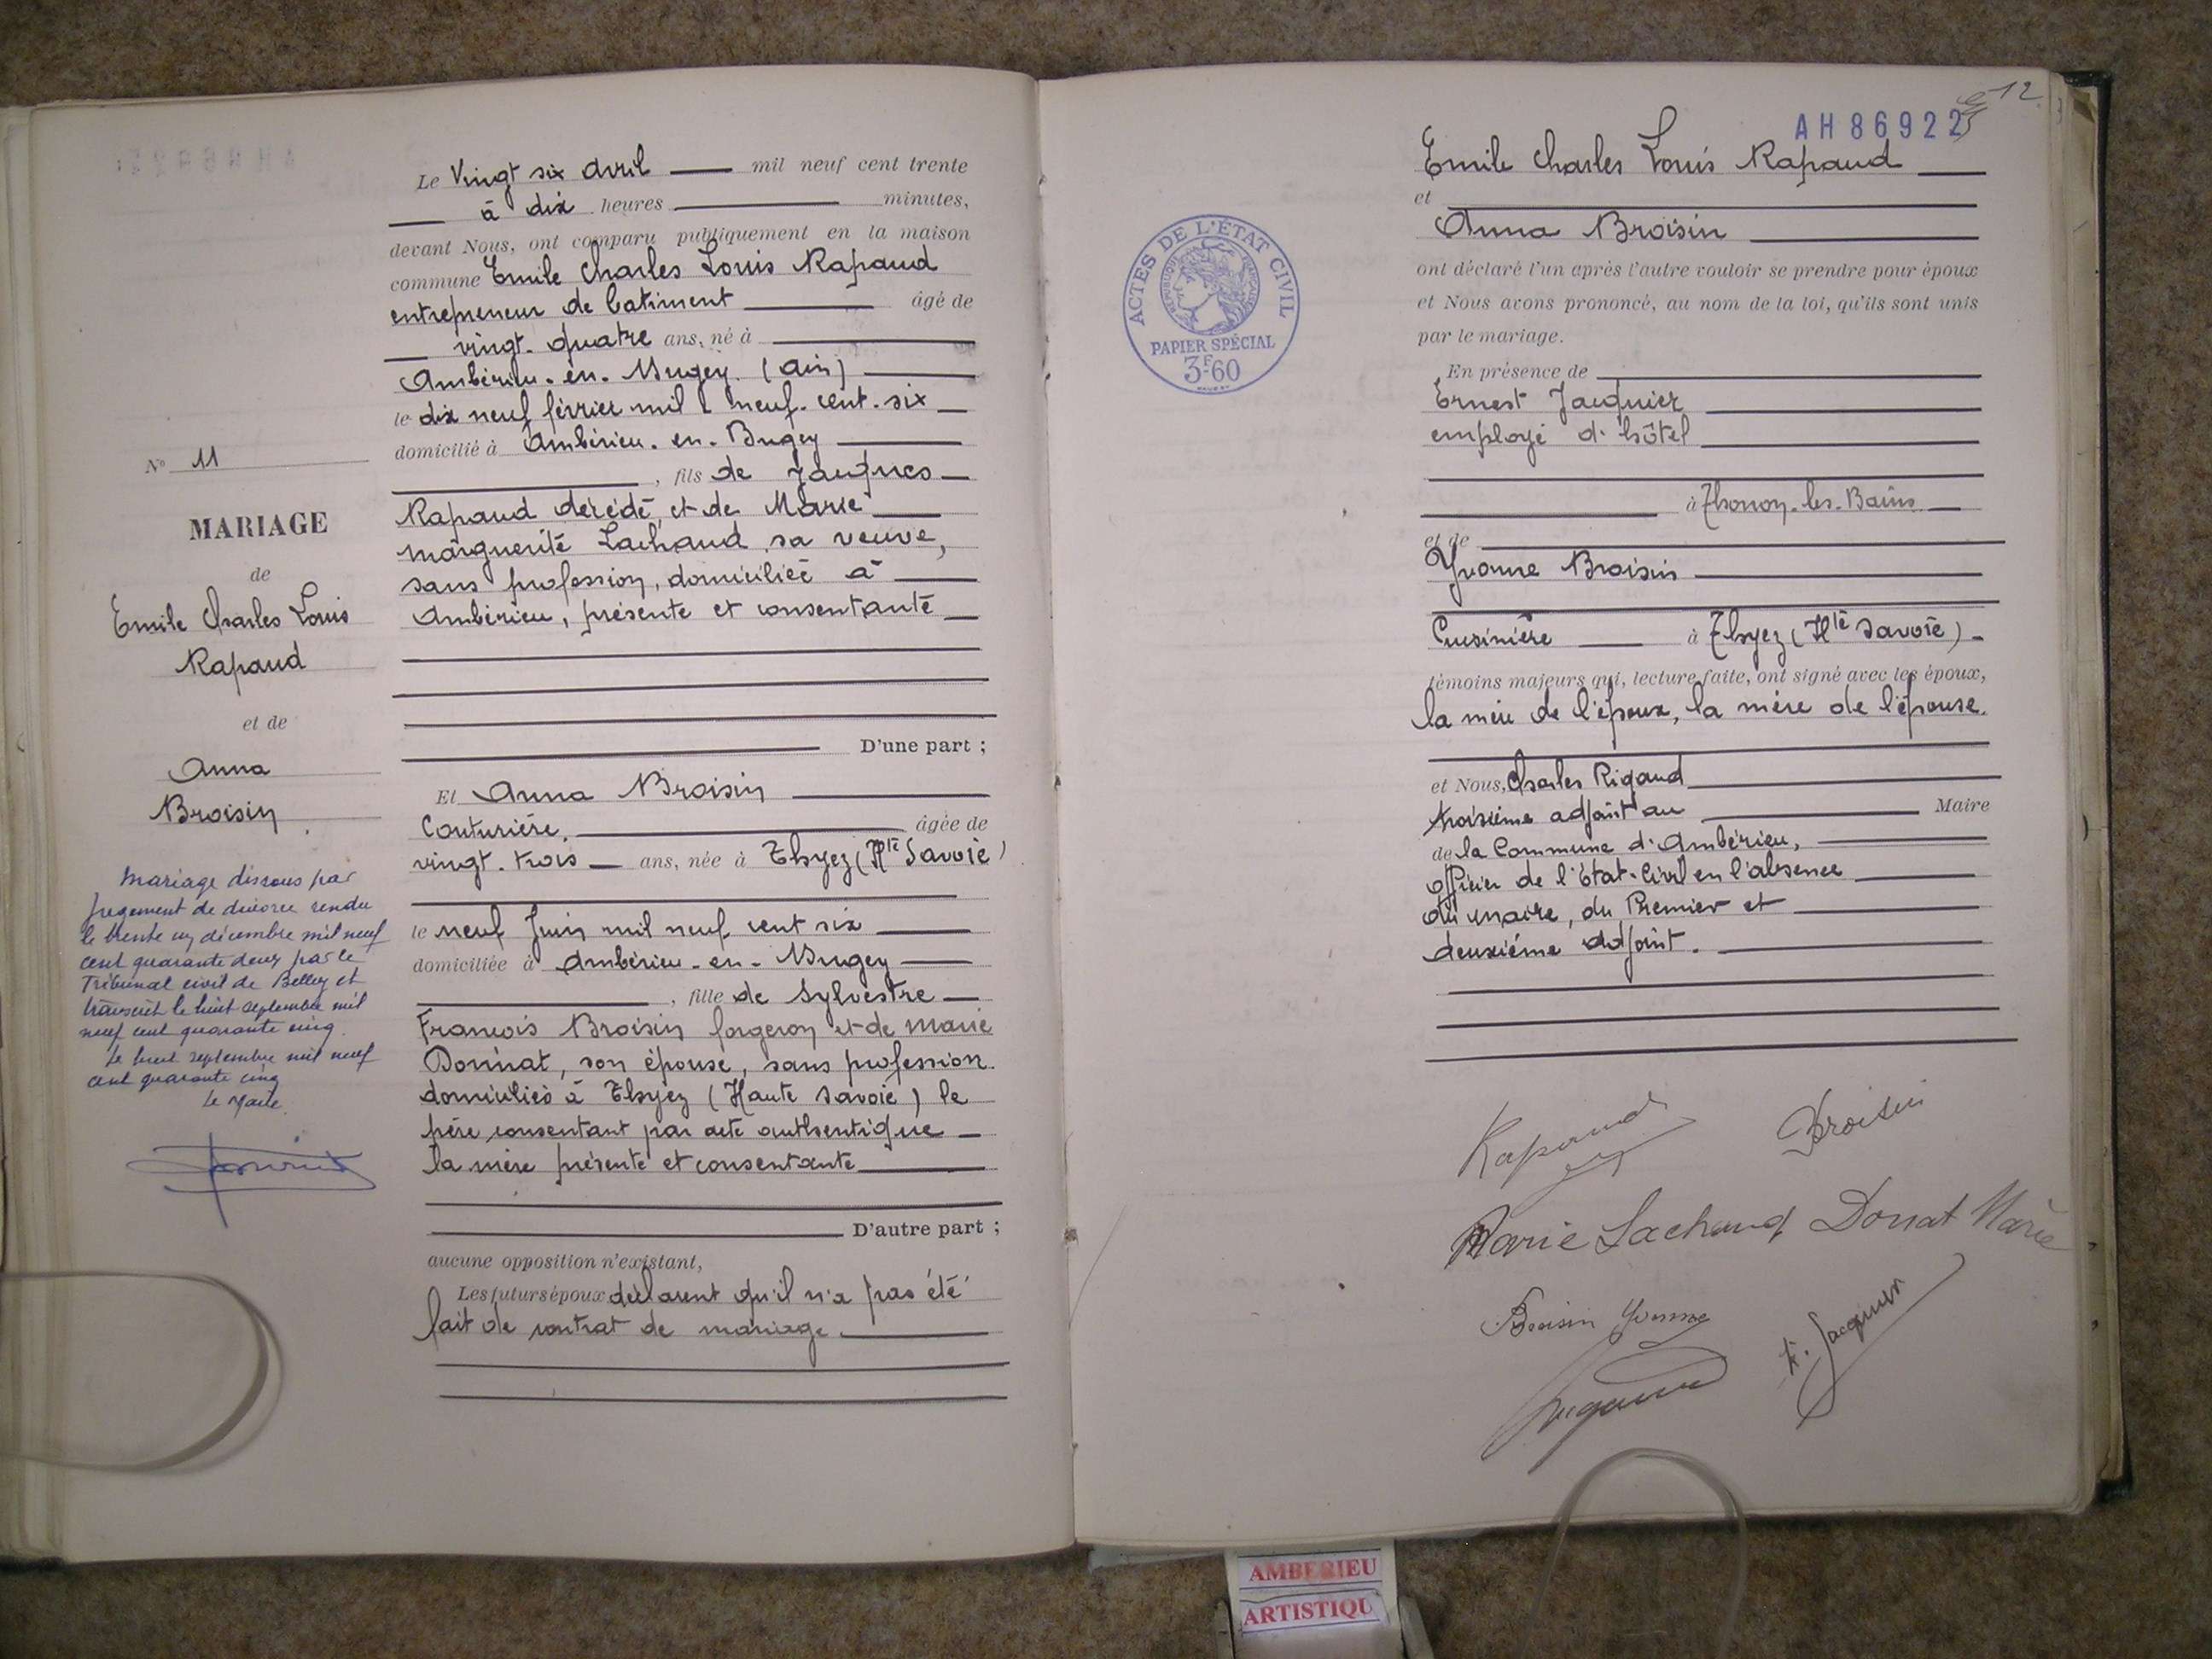 N° 11
MARIAGE
de
Emile Charles Louis
Rapaud
et de
Anna
Broisin
Mariage dissous par
jugement de divorce rendu
le trente un décembre mil neuf
cent quarante deux par le
Tribunal civil de Belley et
transcrit le huit septembre mil
neuf cent quarante cinq.
Le huit septembre mil neuf
cent quarante cinq
Le Maire
Le Vingt six Avril mil neuf cent trente
à dix heures minutes,
devant Nous, ont comparu publiquement en la maison
commune Emile Charles Louis Rapaud
entrepreneur de batiment âgé de
vingt-quatre ans, né à
Ambérieu-en-Bugey (Ain)
le dix neuf février mil neuf-cent-six
domicilié à Ambérieu-en-Bugey
, fils de Jacques
Rapaud décédé, et de Marie
marguerite Lachaud sa veuve,
sans profession, domiciliée à
Ambérieu, présente et consentante
D'une part ;
Et Anna Broisin
Couturière, âgée de
vingt-trois ans, née à Thyez (Hte Savoie)
le neuf Juin mil neuf cent six
domiciliée à Ambérieu-en-Bugey
, fille de Sylvestre
François Broisin forgeron et de marie
Donnat, son épouse, sans profession
domiciliés à Thyez (Haute Savoie) le
père consentant par acte authentique
la mère présente et consentante
D'autre part ;
aucune opposition n'existant,
Les futurs époux déclarent qu'il n'a pas été
fait de contrat de mariage.
12
AH86922
Emile Charles Louis Rapaud
et
Anna Broisin
ont déclaré l'un après l'autre vouloir se prendre pour époux
et Nous avons prononcé, au nom de la loi, qu'ils sont unis
par le mariage.
En présence de
Ernest Jacquier
employé d'hôtel
à Thonon-les-Bains
et de
Yvonne Broisin
Cuisinière à Thyez (Hte Savoie)
témoins majeurs qui, lecture faite, ont signé avec les époux,
la mère de l'époux, la mère de l'épouse.
et Nous, Charles Rigaud
troisième adjoint au Maire
de la Commune d'Ambérieu,
officier de l'Etat-Civil en l'absence
du maire, du Premier et
deuxiéme adjoint.
Rapaud
Broisin
Marie Lachaud
Donat Marie
Broisin Yvonne
E. Jacquier
Rigaud
ACTES DE L'ÉTAT CIVIL
RÉPUBLIQUE FRANÇAISE
PAPIER SPÉCIAL
3F60
AMBERIEU
ARTISTIQU